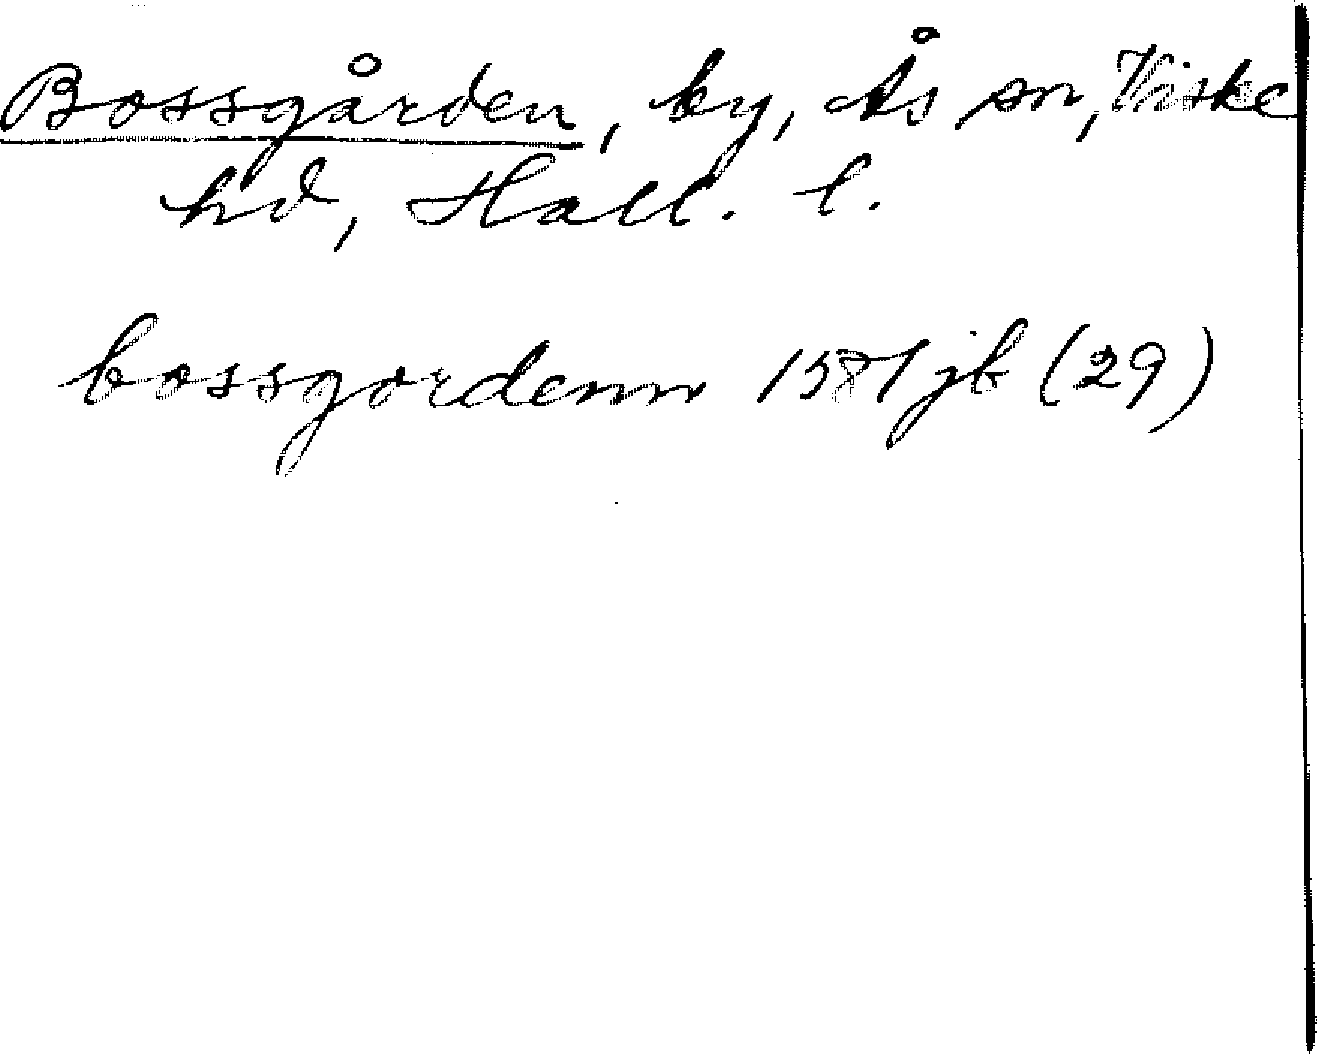 Bossgården, by, Ås sn, Viske
hd, Hall. l.
bossgordenn 1581 jb (29)